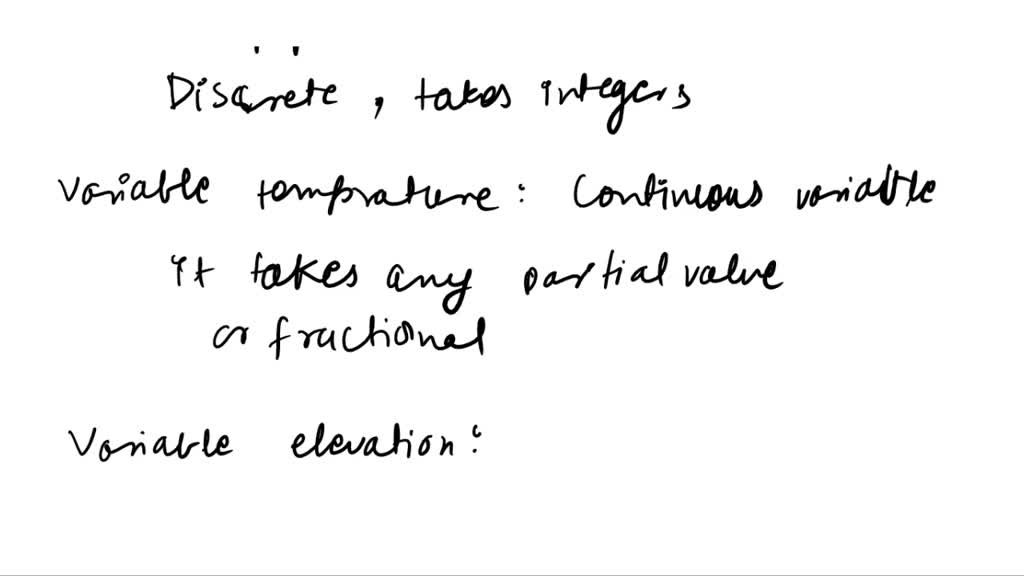 Discrete, takes integers
Variable temprature: Continuous variable
it takes any partial value
or fractional
Variable elevation: